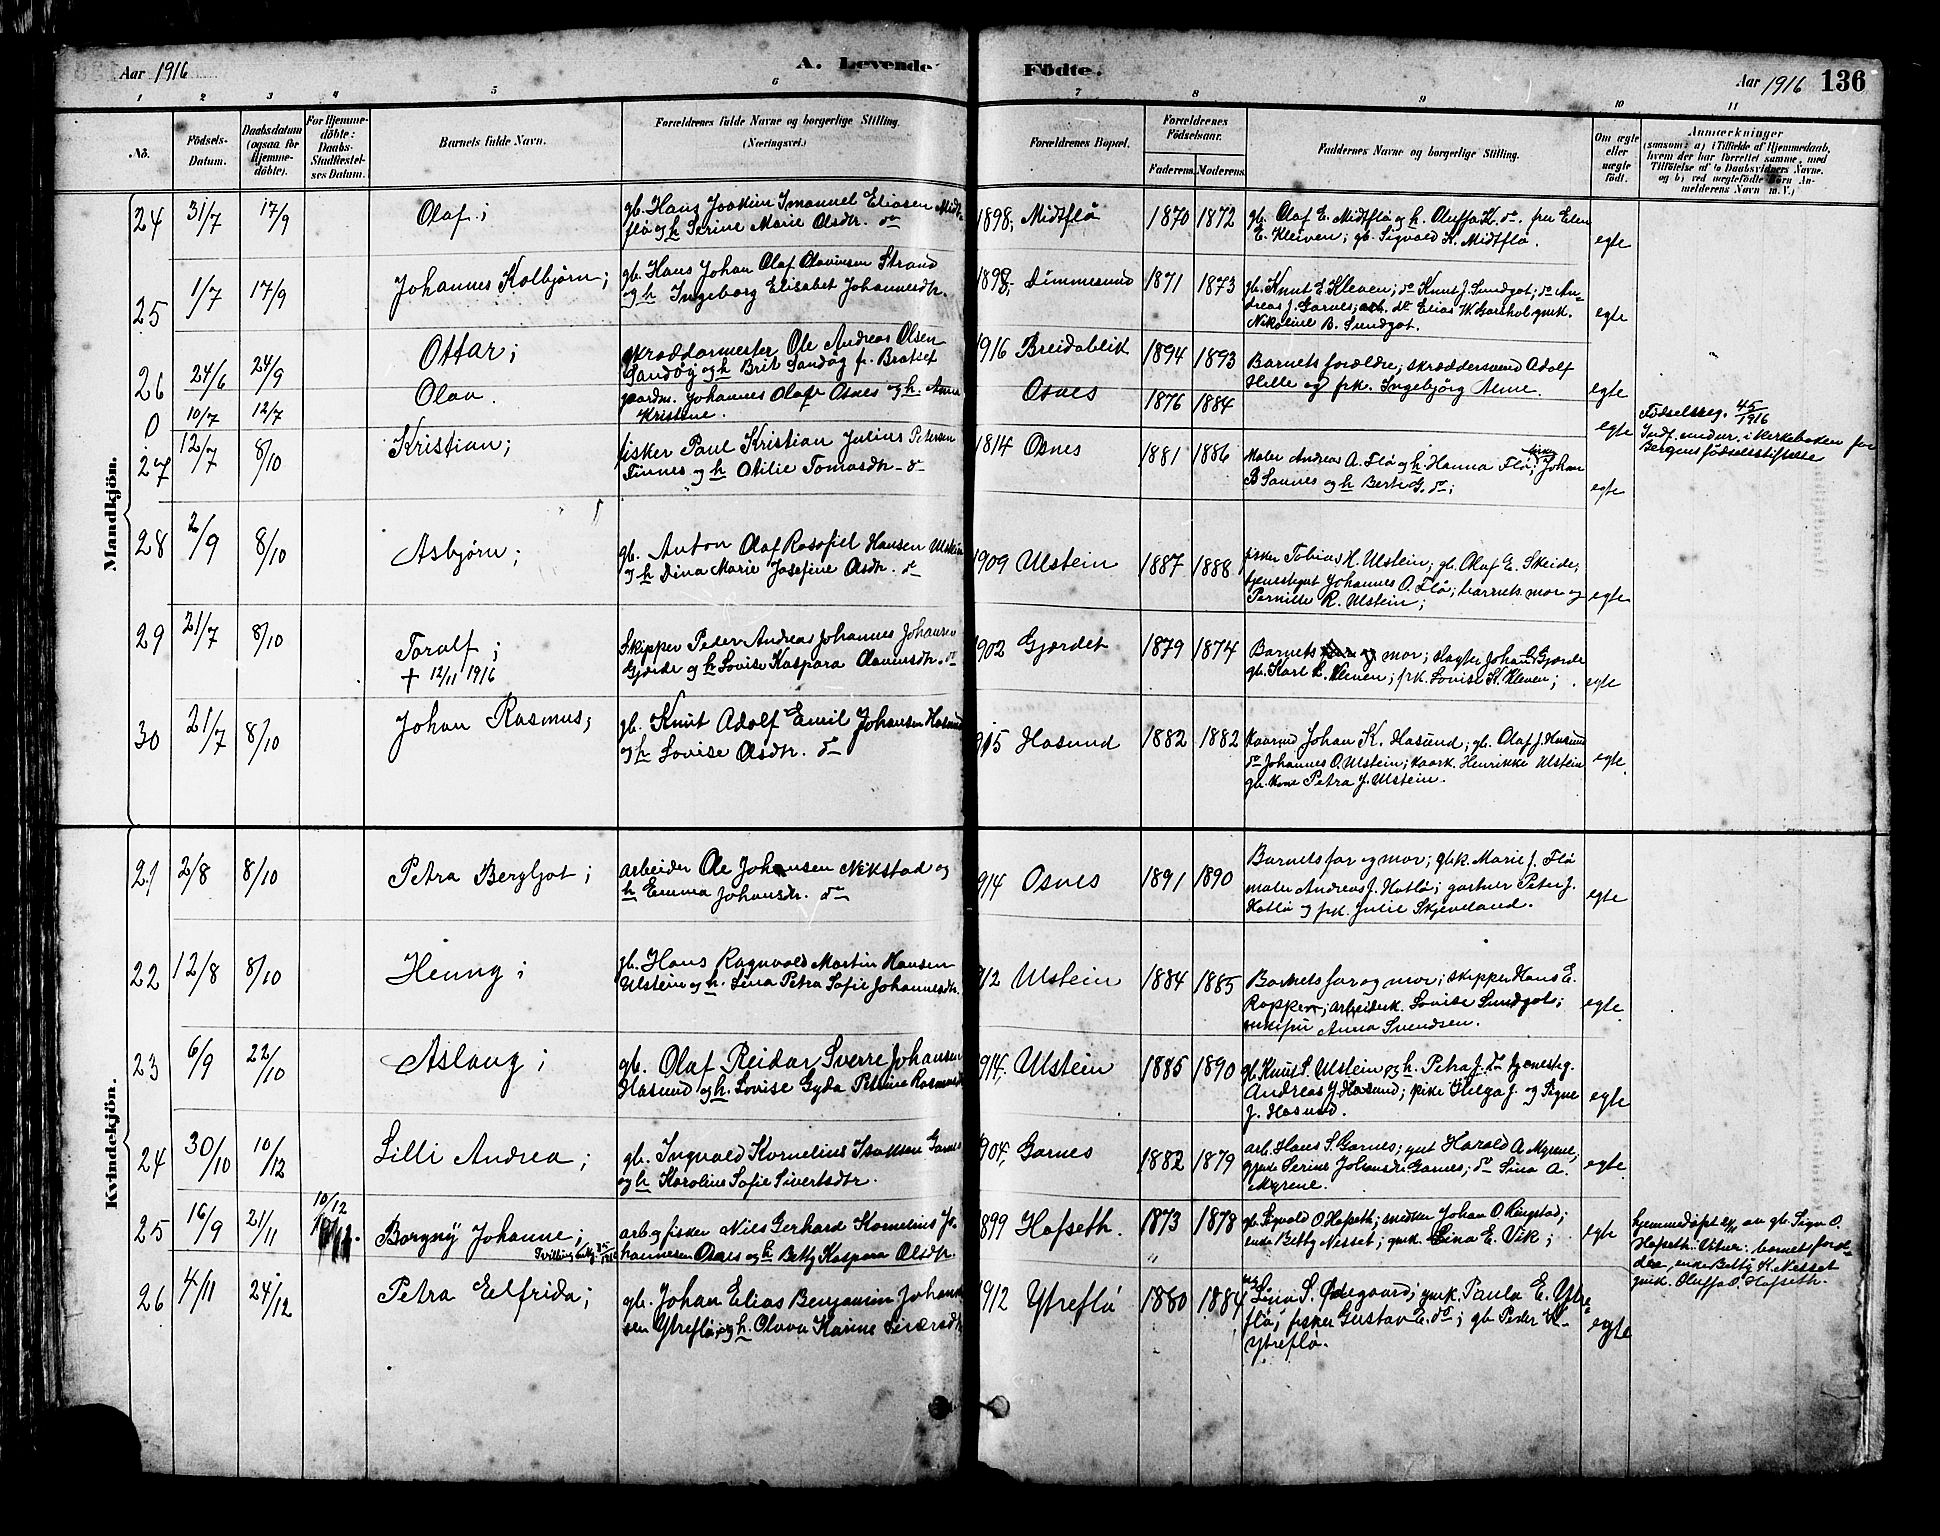 Aar 1916
A. Levende
Födte.
Aar 1916 136
1 2 3 4 5 6 7 8 9 10 11
No.
Födsels-
Datum.
Daabsdatum
(ogsaa for
Hjemme-
döbte).
For Hjemme-
döbte:
Daabs-
Stadfæstel-
ses Datum.
Barnets fulde Navn.
Forældrenes fulde Navne og borgerlige Stilling.
(Næringsvei.)
Forældrenes Bopæl.
Forældrenes
Födselsaar.
Faderens. Moderens.
Faddernes Navne og borgerlige Stilling.
Om ægte
eller
uægte
födt.
Anmærkninger
(saasom: a) i Tilfælde af Hjemmedaab,
hvem der har forrettet samme, med
Tilföielse af to Daabsvidners Navne,
og b) ved uægtefödte Börn An-
melderens Navn m. V.)
Mandkjön.
24 31/7 17/9 Olaf;
gb. Hans Joakim Imanuel Eliasen Midt-
flø og h Serine Marie Olsdtr. do
1898; Midtflø 1870 1872
gb. Olaf E. Midtflø og h. Oluffa K. do. fru Elen
E. Kleiven; gb. Sigvald K. Midtflø.
egte
25 1/7 17/9 Johannes Kolbjørn;
gb. Hans Johan Olaf Olavinsen Strand
og h Ingeborg Elisabet Johannesdtr.
1898; Dimmesund 1871 1873
gb. Knut E. Kleven; do Knut J. Sundgot; do An-
dreas J. Garnes; do Elias W. Garshol; gmk.
Nikoline B. Sundgot.
egte
26 24/6 24/9 Ottar;
skræddermester Ole Andreas Olsen
Sandøy og h Brit Sandøy f. Bratset
1916 Breidablik 1894 1893
Barnets forældre; skræddersvend Adolf
Hille og frk. Ingebjørg Aune.
egte
0 10/7 12/7 Olav.
gaardm. Johannes Olafs Osnes og h. Anna
Kristine.
Osnes 1876 1884
egte
Fødselsreg. 45/1916
Indf. under. i Kirkeboken for
Bergens fødselsstiftelse
27 12/7 8/10 Kristian;
fisker Paul Kristian Julius Petersen
Finnes og h Otilie Tomasdtr. do
1914 Osnes 1881 1886
Maler Andreas A. Flø og h. Hanna Flø; Johan
B Sannes og h Berte G. do;
egte
28 2/9 8/10 Asbjørn;
gb. Anton Olaf Rasofiel Hansen Ulstein
og h Dina Marie Josefine Olsdtr. do
1909 Ulstein 1887 1888
fisker Tobias H. Ulstein; gb. Olaf E. Skeide;
tjenestegut Johannes O. Flø; barnets mor og
Pernille R. Ulstein;
egte
29 21/7 8/10 Toralf;
† 12/11 1916
Skipper Peder Andreas Johannes Johansen
Gjerde og h Lovise Kaspara Olavinsdtr. do
1902 Gjerdet 1879 1874
Barnets mor; slagter Johan G. Gjerde
gb. Karl K. Kleven; frk. Lovise K. Kleven;
egte
30 21/7 8/10 Johan Rasmus;
gb. Knut Adolf Emil Johansen Hasund
og h Lovise Olsdtr. do
1915 Hasund 1882 1882
kaarmd Johan K. Hasund; gb. Olaf J. Hasund
do Johannes O. Ulstein; kaark. Henrikke Ulstein
gb. kone Petra J. Ulstein.
egte.
Kvindekjön.
21 2/8 8/10 Petra Bergljot;
arbeider Ole Johansen Nekstad og
h Emma Johansdtr. do
1914 Osnes 1891 1890
Barnets far og mor; gbk. Marie J. Flø
maler Andreas J. Hatlø; gartner Peter J.
Hatlø og frk. Julie Skjeveland.
egte
22 12/8 8/10 Henny;
gb. Hans Ragnvald Martin Hansen
Ulstein og h. Lina Petra Sofie Johannesdtr.
1912 Ulstein 1884 1885
Barnets far og mor; skipper Hans E.
Roppen; arbeiderk. Lovise Sundgot;
enkefru Anna Svendsen.
egte.
23 6/9 22/10 Aslaug;
gb. Olaf Reidar Sverre Johansen
Hasund og h. Lovise Gyda Petrine Rasmusdt
1914; Ulstein 1885 1890
gb. Knut S. Ulstein og h. Petra J. do tjenesteg.
Andreas J. Hasund; pike Helga J. og Signe
J. Hasund.
egte
24 30/10 10/12 Lilli Andrea;
gb. Ingvald Kornelius Isaksen Garnes
og h Karoline Sofie Sivertsdtr.
1904; Garnes 1882 1879
arb. Hans S. Garnes; gut Harald A Myrene;
gmk Serine Johansdt Garnes; do Lina A.
Myrene.
egte.
25 16/9 21/11 10/12
Borgny Johanne;
Tvilling
arb. og fisker Nils Gerhard Kornelius Jo-
hannessen Osnes og h Betty Kaspara Olsdtr.
1899 Hofseth. 1873 1878
gb. Sigvald O Hofseth; snedker Johan O Ringstad;
enke Betty Nesset; gmk. Lina E. Vik;
egte
hjemmedøpt av gb. Sign O.
Hofseth. Vitner: barnets foræl-
dre, enke Betty K. Nesset
gmk. Oluffa O. Hofseth.
26 4/11 24/12 Petra Elfrida;
gb. Johan Elias Benjamin Johan-
sen Ytreflø, og h. Olava Karine Sivertsdtr
1912 Ytreflø 1880 1884
Lina S. Ødegaard; gmk. Paula E. Ytre-
flø; fisker Gustav E. do; gb Peder K.
Ytreflø.
egte